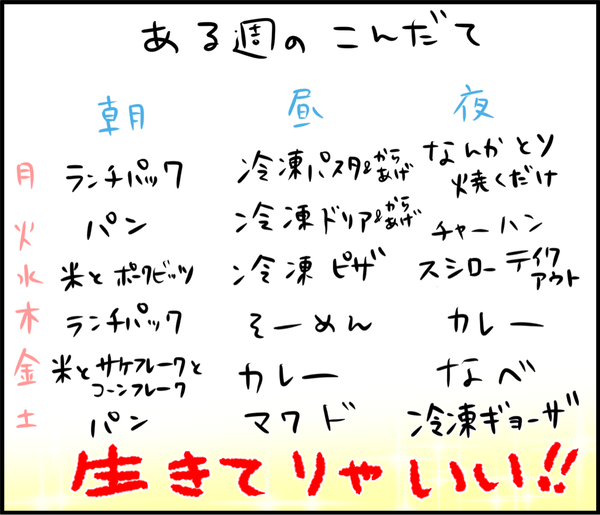 ある週のこんだて
朝 昼 夜
月 ランチパック 冷凍パスタ&からあげ なんかとり焼くだけ
火 パン 冷凍ドリア&からあげ チャーハン
水 米とポークビッツ 冷凍ピザ スシローテイクアウト
木 ランチパック そーめん カレー
金 米とサケフレークとコーンフレーク カレー なべ
土 パン マクド 冷凍ギョーザ
生きてりゃいい!!